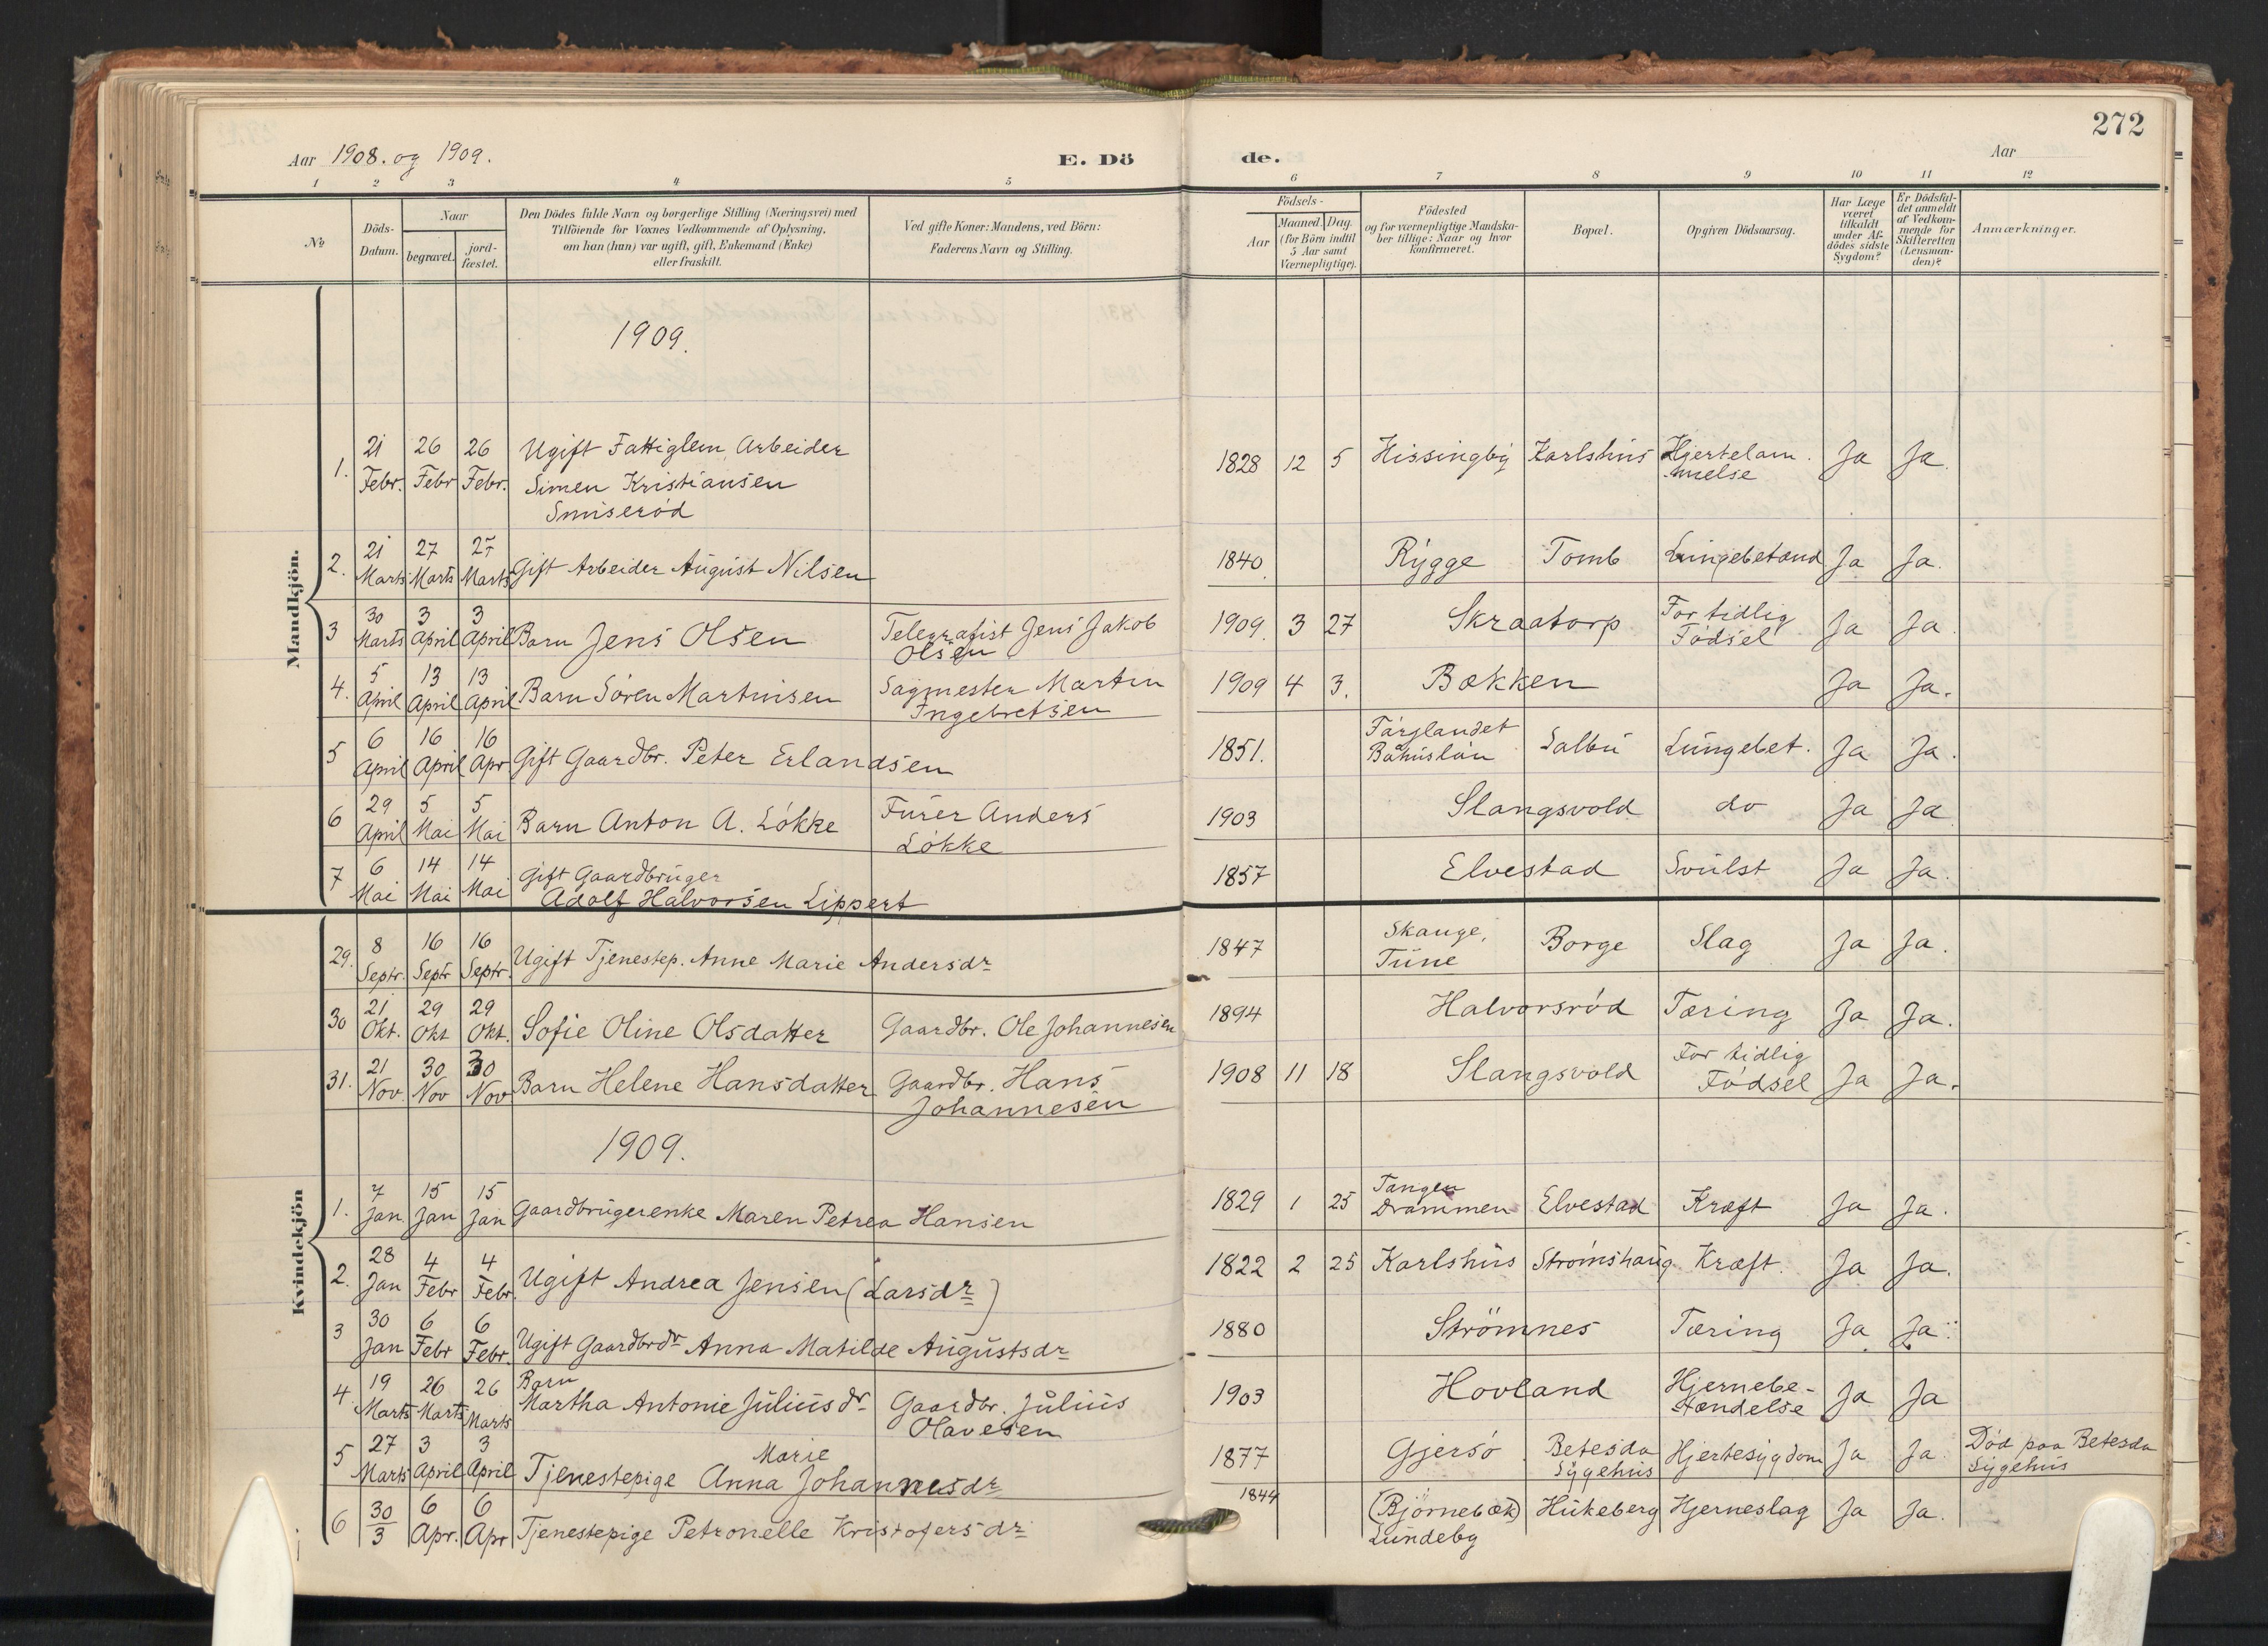 272
Aar 1908. og 1909. E. Dö de. Aar
1 2 3 4 5 6 7 8 9 10 11 12
№
Döds-Datum.
Naar
begravet. jord-fæstet.
Den Dödes fulde Navn og borgerlige Stilling (Næringsvei) med
Tilföiende for Voxnes Vedkommende af Oplysning,
om han (hun) var ugift, gift, Enkemand (Enke)
eller fraskilt.
Ved gifte Koner: Mandens, ved Börn:
Faderens Navn og Stilling.
Födsels-
Aar Maaned. Dag.
(for Börn indtil
5 Aar samt
Værnepligtige).
Födested
og for værnepligtige Mandska-
ber tillige: Naar og hvor
konfirmeret.
Bopæl.
Opgiven Dödsaarsag.
Har Læge
været
tilkaldt
under Af-
dödes sidste
Sygdom?
Er Dödsfal-
det anmeldt
af Vedkom-
mende for
Skifteretten
(Lensman-
den)?
Anmærkninger.
Mandkjön.
1909.
1. 21 Febr. 26 Febr 26 Febr. Ugift Fattiglem Arbeider
Simen Kristiansen
Smiserød
1828 12 5 Hissingby Karlshus Hjertelam-
melse Ja Ja
2. 21 Marts 27 Marts 27 Marts Gift Arbeider August Nilsen 1840 Rygge Tomb Lungebetænd Ja Ja.
3 30 Marts 3 April 3 April Barn Jens Olsen Telegrafist Jens Jakob
Olsen 1909. 3 27 Skraatorp For tidlig
Fødsel Ja Ja
4. 5 April 13 April 13 April Barn Søren Martinsen Sagmester Martin
Ingebretsen 1909 4 3. Bækken Ja Ja.
5 6 April 16 April 16 Apr Gift Gaardbr. Peter Erlandsen 1851. Färglandet
Båhuslän Salbu Lungebet. Ja Ja.
6 29 April 5 Mai 5 Mai Barn Anton A. Løkke Furer Anders
Løkke 1903 Slangsvold do Ja Ja
7 6 Mai 14 Mai 14 Mai Gift Gaardbruger
Adolf Halvorsen Lippert 1857 Elvestad Svulst Ja Ja.
Kvindekjön
29. 8 Septr. 16 Septr 16 Septr. Ugift Tjenestep. Anne Marie Andersdr 1847 Skauge,
Tune Borge Slag Ja Ja.
30 21 Okt. 29 Okt 29 Okt. Sofie Oline Olsdatter Gaardbr. Ole Johannesen 1894 Halvorsrød Tæring Ja Ja.
31. 21 Nov. 30 Nov 30 Nov Barn Helene Hansdatter Gaardbr. Hans
Johannesen 1908 11 18 Slangsvold For tidlig
Fødsel Ja Ja.
1909.
1. 7 Jan. 15 Jan 15 Jan Gaardbrugerenke Maren Petrea Hansen 1829 1 25 Tangen
Drammen Elvestad Kræft Ja Ja.
2. 28 Jan 4 Febr 4 Febr. Ugift Andrea Jensen (Larsdr) 1822 2 25 Karlshus Strømshaug Kræft. Ja Ja.
3 30 Jan 6 Febr 6 Febr. Ugift Gaardbrdr Anna Matilde Augustsdr 1880 Strömnes Tæring Ja Ja.
4. 19 Marts 26 Marts 26 Marts Barn
Martha Antonie Juliusdr Gaardbr. Julius
Olavesen 1903 Hovland Hjernebe-
tændelse Ja Ja
5 27 Marts 3 April 3 April Tjenestepige Anna Marie Johannesdr 1877 Gjersø Betesda
Sygehus Hjertesygdom Ja Ja Død paa Betesda
Sygehus
6 30/3 6 Apr. 6 Apr Tjenestepige Petronelle Kristofersdr 1844 (Bjørnebæk)
Lundeby Hukeberg Hjerneslag Ja Ja.